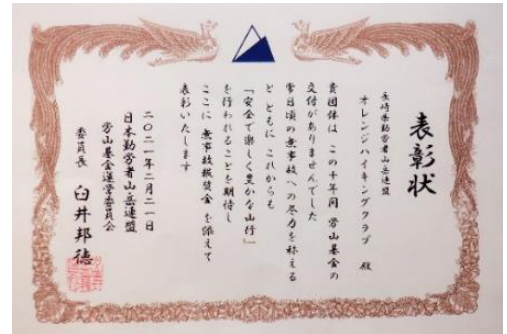 表彰状
長崎県勤労者山岳連盟
オレンジハイキングクラブ 殿
貴団体は この十年間 労山基金の
交付がありませんでした
常日頃の無事故への尽力を称える
と ともに これからも
「安全で楽しく豊かな山行」
を行われることを期待し
ここに 無事故報奨金 を添えて
表彰いたします
二〇二一年二月二一日
日本勤労者山岳連盟
労山基金運営委員会
委員長 臼井邦徳